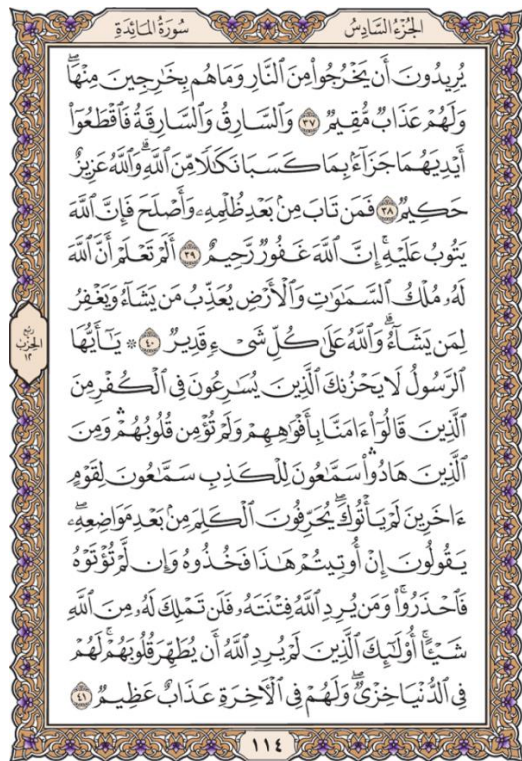 الجُزْءُ السَّادِسُ
سُورَةُ المَائِدَةِ
يُرِيدُونَ أَن يَخْرُجُواْ مِنَ ٱلنَّارِ وَمَا هُم بِخَٰرِجِينَ مِنْهَاۖ
وَلَهُمْ عَذَابٌ مُّقِيمٌ ٣٧ وَٱلسَّارِقُ وَٱلسَّارِقَةُ فَٱقْطَعُوٓاْ
أَيْدِيَهُمَا جَزَآءَۢ بِمَا كَسَبَا نَكَٰلٗا مِّنَ ٱللَّهِۗ وَٱللَّهُ عَزِيزٌ
حَكِيمٞ ٣٨ فَمَن تَابَ مِنۢ بَعْدِ ظُلْمِهِۦ وَأَصْلَحَ فَإِنَّ ٱللَّهَ
يَتُوبُ عَلَيْهِۚ إِنَّ ٱللَّهَ غَفُورٞ رَّحِيمٌ ٣٩ أَلَمْ تَعْلَمْ أَنَّ ٱللَّهَ
لَهُۥ مُلْكُ ٱلسَّمَٰوَٰتِ وَٱلْأَرْضِ يُعَذِّبُ مَن يَشَآءُ وَيَغْفِرُ
لِمَن يَشَآءُۗ وَٱللَّهُ عَلَىٰ كُلِّ شَيْءٖ قَدِيرٞ ٤٠ ۞ يَٰٓأَيُّهَا
ٱلرَّسُولُ لَا يَحْزُنكَ ٱلَّذِينَ يُسَٰرِعُونَ فِي ٱلْكُفْرِ مِنَ
ٱلَّذِينَ قَالُوٓاْ ءَامَنَّا بِأَفْوَٰهِهِمْ وَلَمْ تُؤْمِن قُلُوبُهُمْۛ وَمِنَ
ٱلَّذِينَ هَادُواْۛ سَمَّٰعُونَ لِلْكَذِبِ سَمَّٰعُونَ لِقَوْمٍ
ءَاخَرِينَ لَمْ يَأْتُوكَۖ يُحَرِّفُونَ ٱلْكَلِمَ مِنۢ بَعْدِ مَوَاضِعِهِۦۖ
يَقُولُونَ إِنْ أُوتِيتُمْ هَٰذَا فَخُذُوهُ وَإِن لَّمْ تُؤْتَوْهُ
فَٱحْذَرُواْۚ وَمَن يُرِدِ ٱللَّهُ فِتْنَتَهُۥ فَلَن تَمْلِكَ لَهُۥ مِنَ ٱللَّهِ
شَيْـًٔاۚ أُوْلَٰٓئِكَ ٱلَّذِينَ لَمْ يُرِدِ ٱللَّهُ أَن يُطَهِّرَ قُلُوبَهُمْۚ لَهُمْ
فِي ٱلدُّنْيَا خِزْيٞۖ وَلَهُمْ فِي ٱلْأٓخِرَةِ عَذَابٌ عَظِيمٞ ٤١
رُبع
الحِزْب
١٢
١١٤